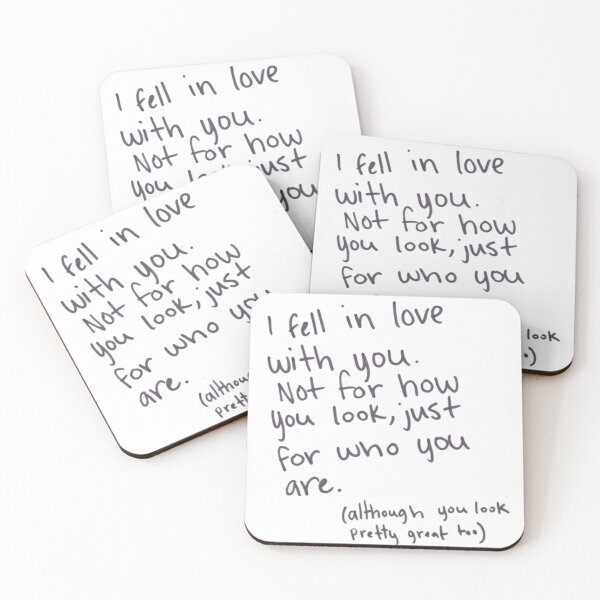 I fell in love
with you.
Not for how
you look, just
you
I fell in love
with you.
Not for how
you look, just
for who you
look
I fell in love
with you.
Not for how
you look, just
for who you
are.
(although
I fell in love
with you.
Not for how
you look, just
for who you
are.
(although you look
pretty great too)